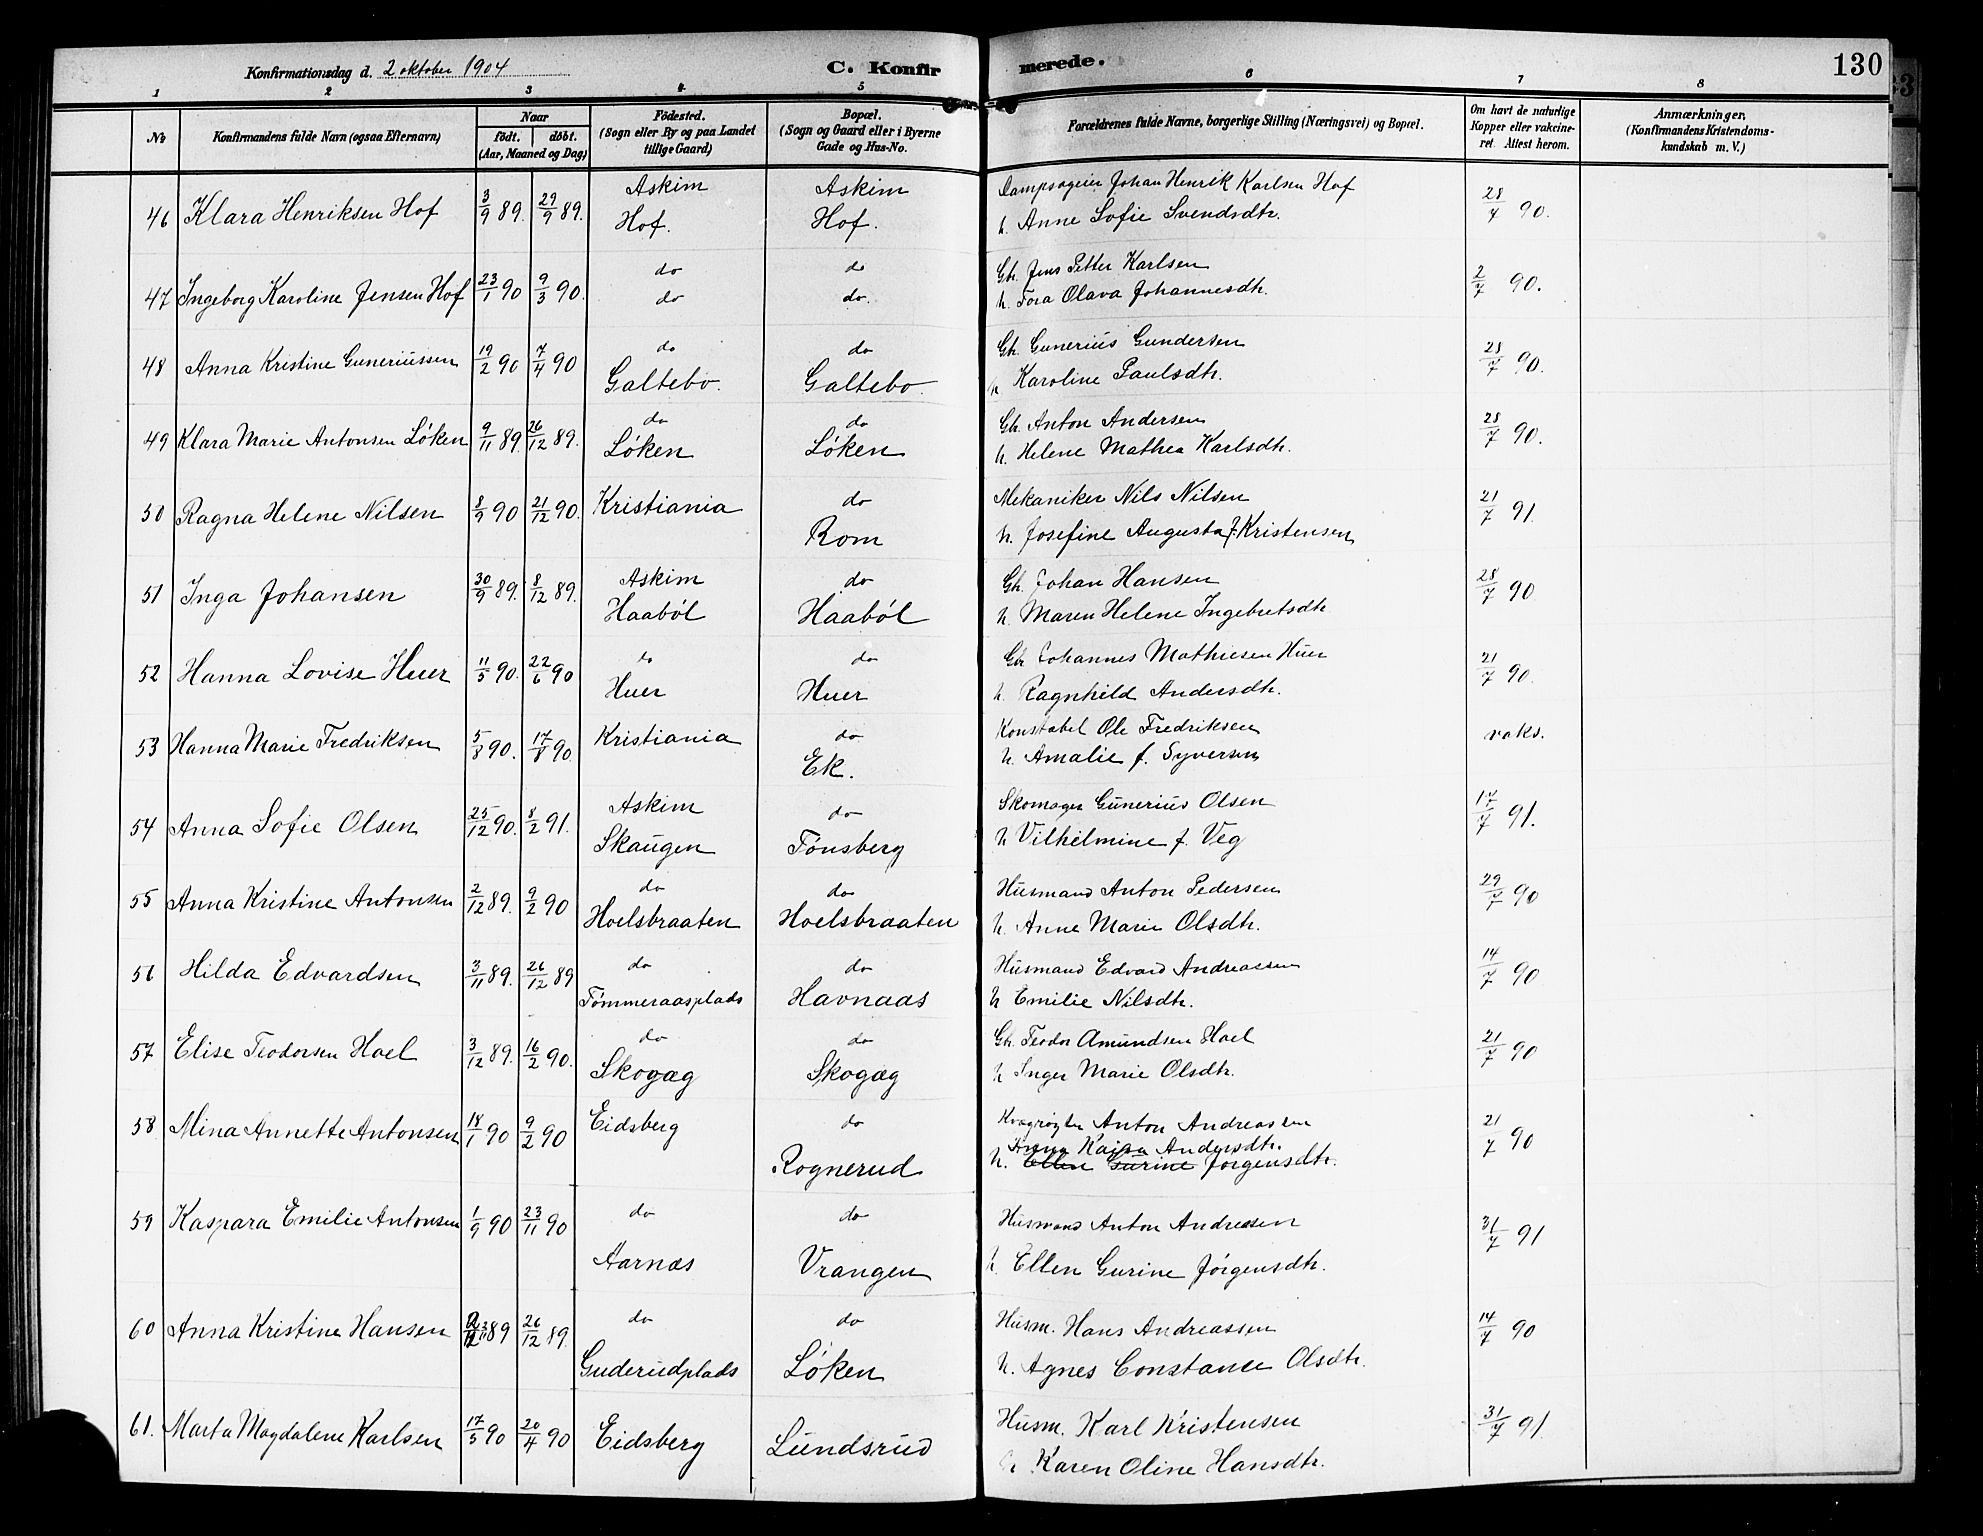 Konfirmationsdag d. 2 oktober 1904 C. Konfir merede. 130
1 2 3 4 5 6 7 8
No Konfirmandens fulde Navn (ogsaa Efternavn) Naar födt. döbt. (Aar, Maaned og Dag) Födested. (Sogn eller By og paa Landet tillige Gaard) Bopæl. (Sogn og Gaard eller i Byerne Gade og Hus-No. Forældrenes fulde Navne, borgerlige Stilling (Næringsvei) og Bopæl. Om havt de naturlige Kopper eller vakcineret. Attest herom. Anmærkninger, (Konfirmandens Kristendomskundskab m. V.)
Askim Askim Dampsageier Johan Henrik Karlsen Hof
46 Klara Henriksen Hof 3/9 89. 29/9 89. Hof. Hof. h. Anne Sofie Svendsdtr. 28/4 90.
do do Gbr. Jens Petter Karlsen
47 Ingeborg Karoline Jensen Hof 23/1 90 9/3 90. do do. h. Tora Olava Johannesdtr. 2/7 90.
do do Gbr. Gunerius Gundersen
48 Anna Kristine Guneriussen 19/2 90 7/4 90 Galtebo. Galtebo. h Karoline Paulsdtr. 28/7 90.
do do Gbr. Anton Andersen
49 Klara Marie Antonsen Löken 9/11 89. 26/12 89. Löken Löken h. Helene Mathea Karlsdtr. 28/7 90.
Kristiania do Mekaniker Nils Nilsen
50 Ragna Helene Nilsen 8/9 90 21/12 90. Rom h. Josefine Augusta f. Kristensen 21/7 91.
Askim do Gbr. Johan Hansen
51 Inga Johansen 30/9 89. 8/12 89. Haaböl Haaböl h. Maren Helene Ingebretsdtr 28/7 90
do do Gbr Johannes Mathiesen Huer
52 Hanna Lovise Huer 11/5 90. 22/6 90 Huer Huer h. Ragnhild Andersdtr. 21/7 90.
Kristiania do Konstabel Ole Fredriksen
53 Hanna Marie Fredriksen 5/8 90. 17/8 90. Ek. h. Amalie f. Syversen vaks.
Askim do Skomager Gunerius Olsen
54 Anna Sofie Olsen 25/12 90. 8/2 91. Skaugen Tönsberg h Vilhelmine f. Veg 17/7 91.
do do Husmand Anton Pedersen
55 Anna Kristine Antonsen 2/12 89. 9/2 90 Hoelsbraaten Hoelsbraaten h. Anne Marie Olsdtr. 29/7 90
do do Husmand Edvard Andreassen
56 Hilda Edvardsen 3/11 89. 26/12 89 Tömmeraasplads Havnaas h Emilie Nilsdtr. 14/7 90
do do Gbr. Teodor Amundsen Hoel
57 Elise Teodorsen Hoel 3/12 89. 16/2 90. Skogæg Skogæg h Inger Marie Olsdtr. 21/7 90
Eidsberg do Anton Andreassen
58 Mina Annette Antonsen 18/1 90 9/2 90 Rognerud Anna Kajsa Andersdtr. 21/7 90
h. Ellen Gurine Jörgensdtr.
do do Husmand Anton Andreasen
59 Kaspara Emilie Antonsen 1/9 90 23/11 90 Aarnæs Vrangen h. Ellen Gurine Jörgensdtr. 31/7 91
do do Husm. Hans Andreassen
60 Anna Kristine Hansen 89 26/12 89. Guderudplads Löken h. Agnes Constance Olsdtr. 14/7 90
Husm. Karl Kristensen
61. Marta Magdalene Karlsen 17/3 90 20/4 90 Eidsberg Lundsrud h Karen Oline Hansdtr. 31/7 91.